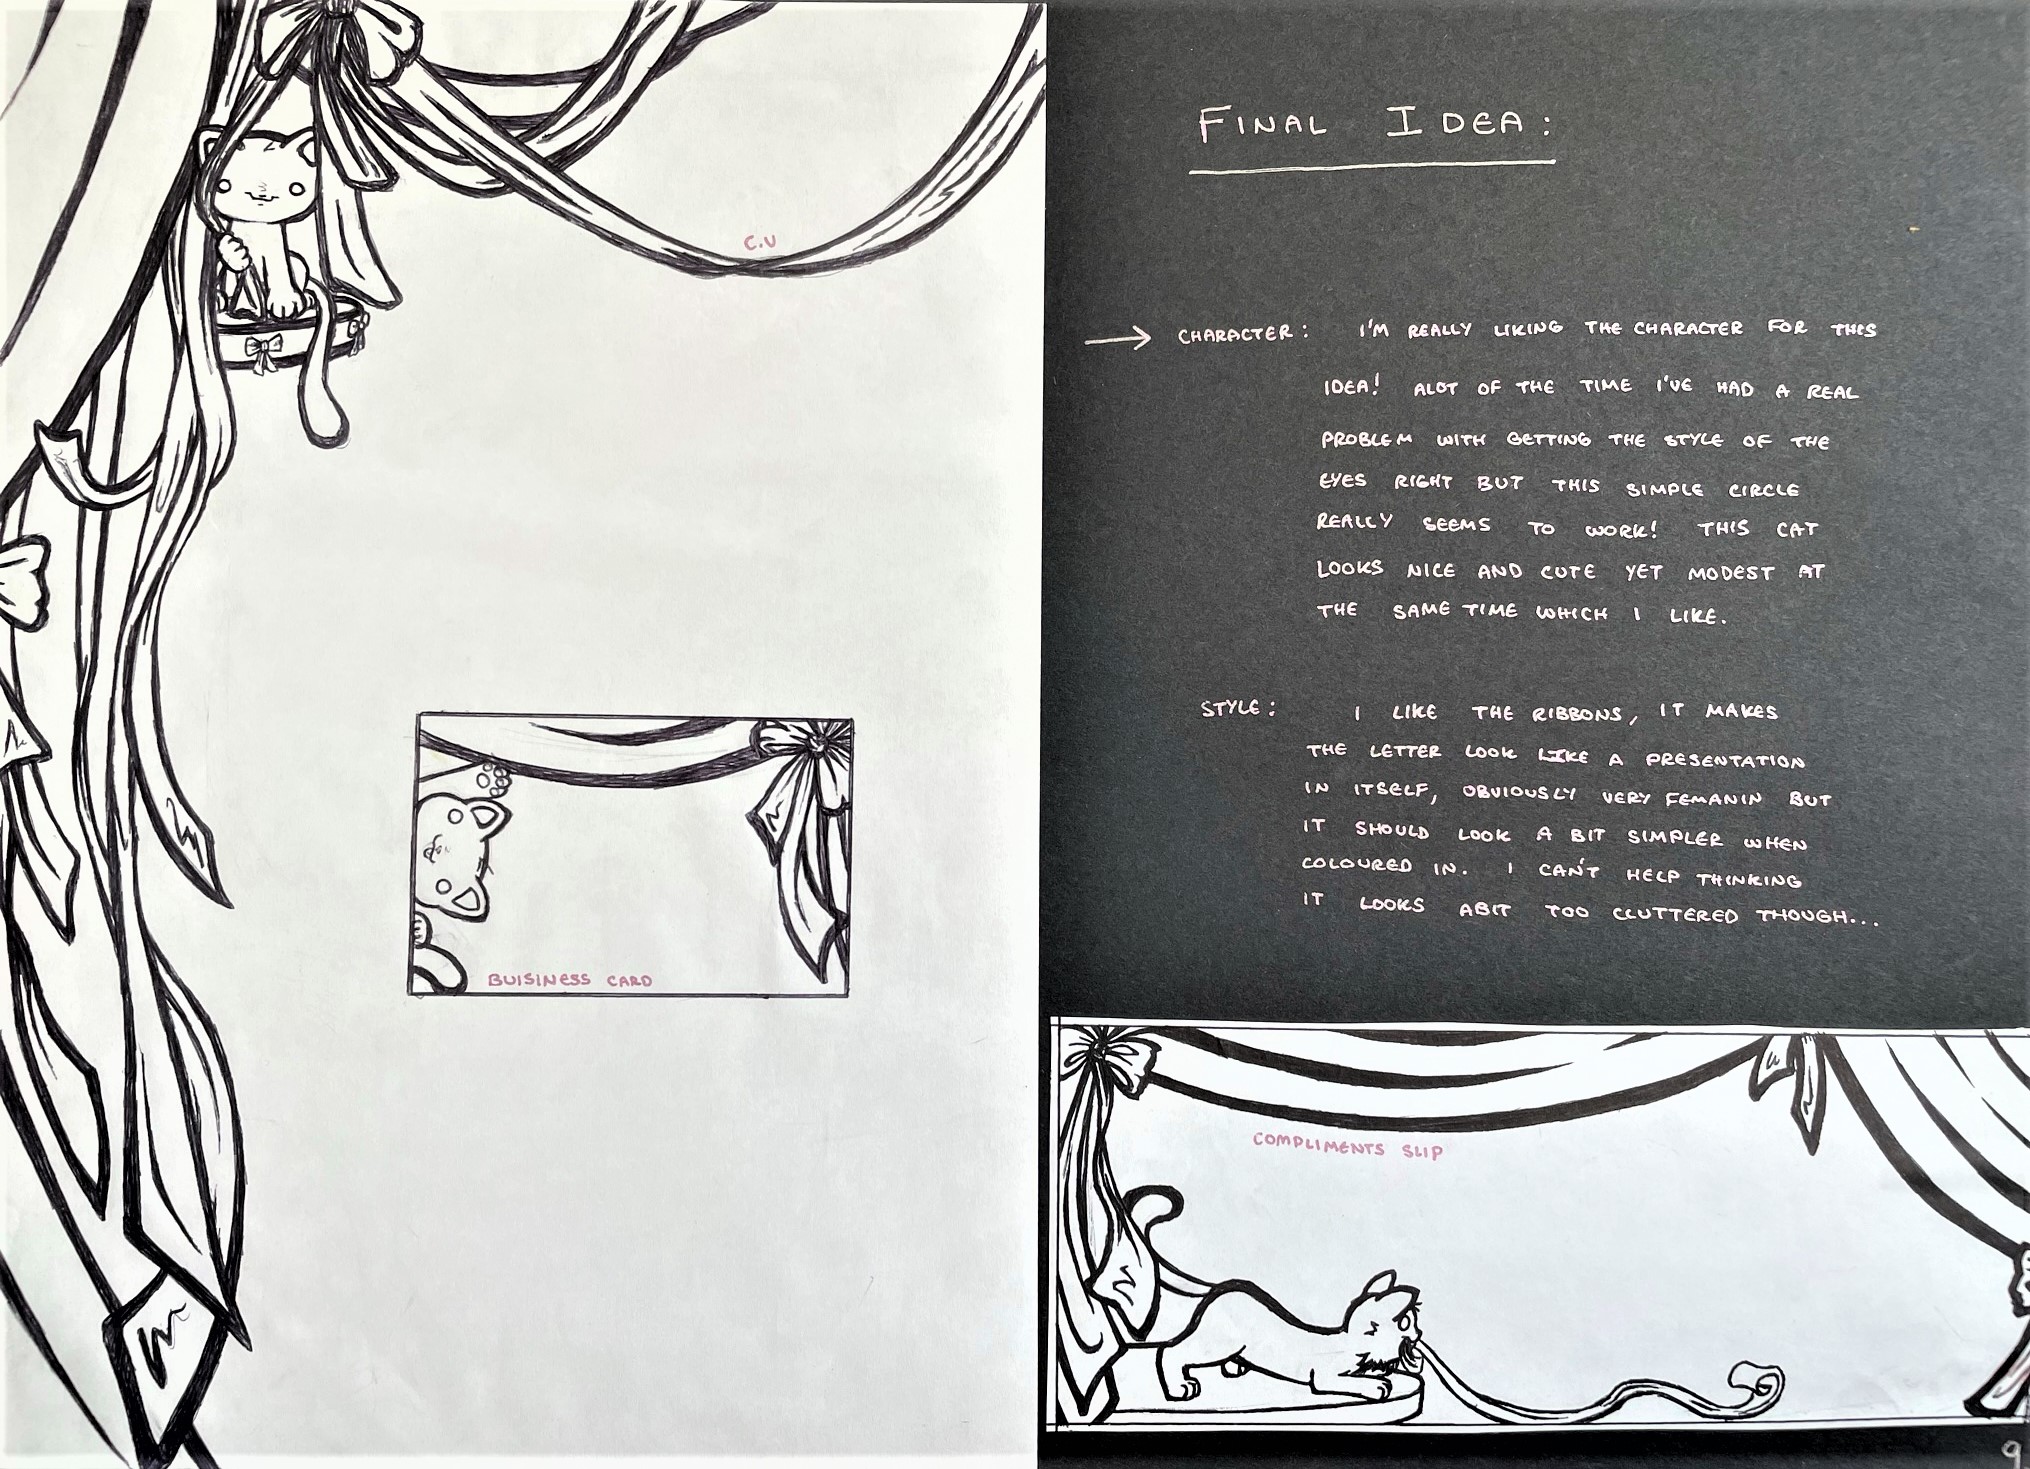 C.V
BUISINESS CARD
FINAL IDEA:
→ CHARACTER: I'M REALLY LIKING THE CHARACTER FOR THIS
IDEA! ALOT OF THE TIME I'VE HAD A REAL
PROBLEM WITH GETTING THE STYLE OF THE
EYES RIGHT BUT THIS SIMPLE CIRCLE
REALLY SEEMS TO WORK! THIS CAT
LOOKS NICE AND CUTE YET MODEST AT
THE SAME TIME WHICH I LIKE.
STYLE: I LIKE THE RIBBONS, IT MAKES
THE LETTER LOOK LIKE A PRESENTATION
IN ITSELF, OBVIOUSLY VERY FEMANIN BUT
IT SHOULD LOOK A BIT SIMPLER WHEN
COLOURED IN. I CAN'T HELP THINKING
IT LOOKS ABIT TOO CLUTTERED THOUGH...
COMPLIMENTS SLIP
9